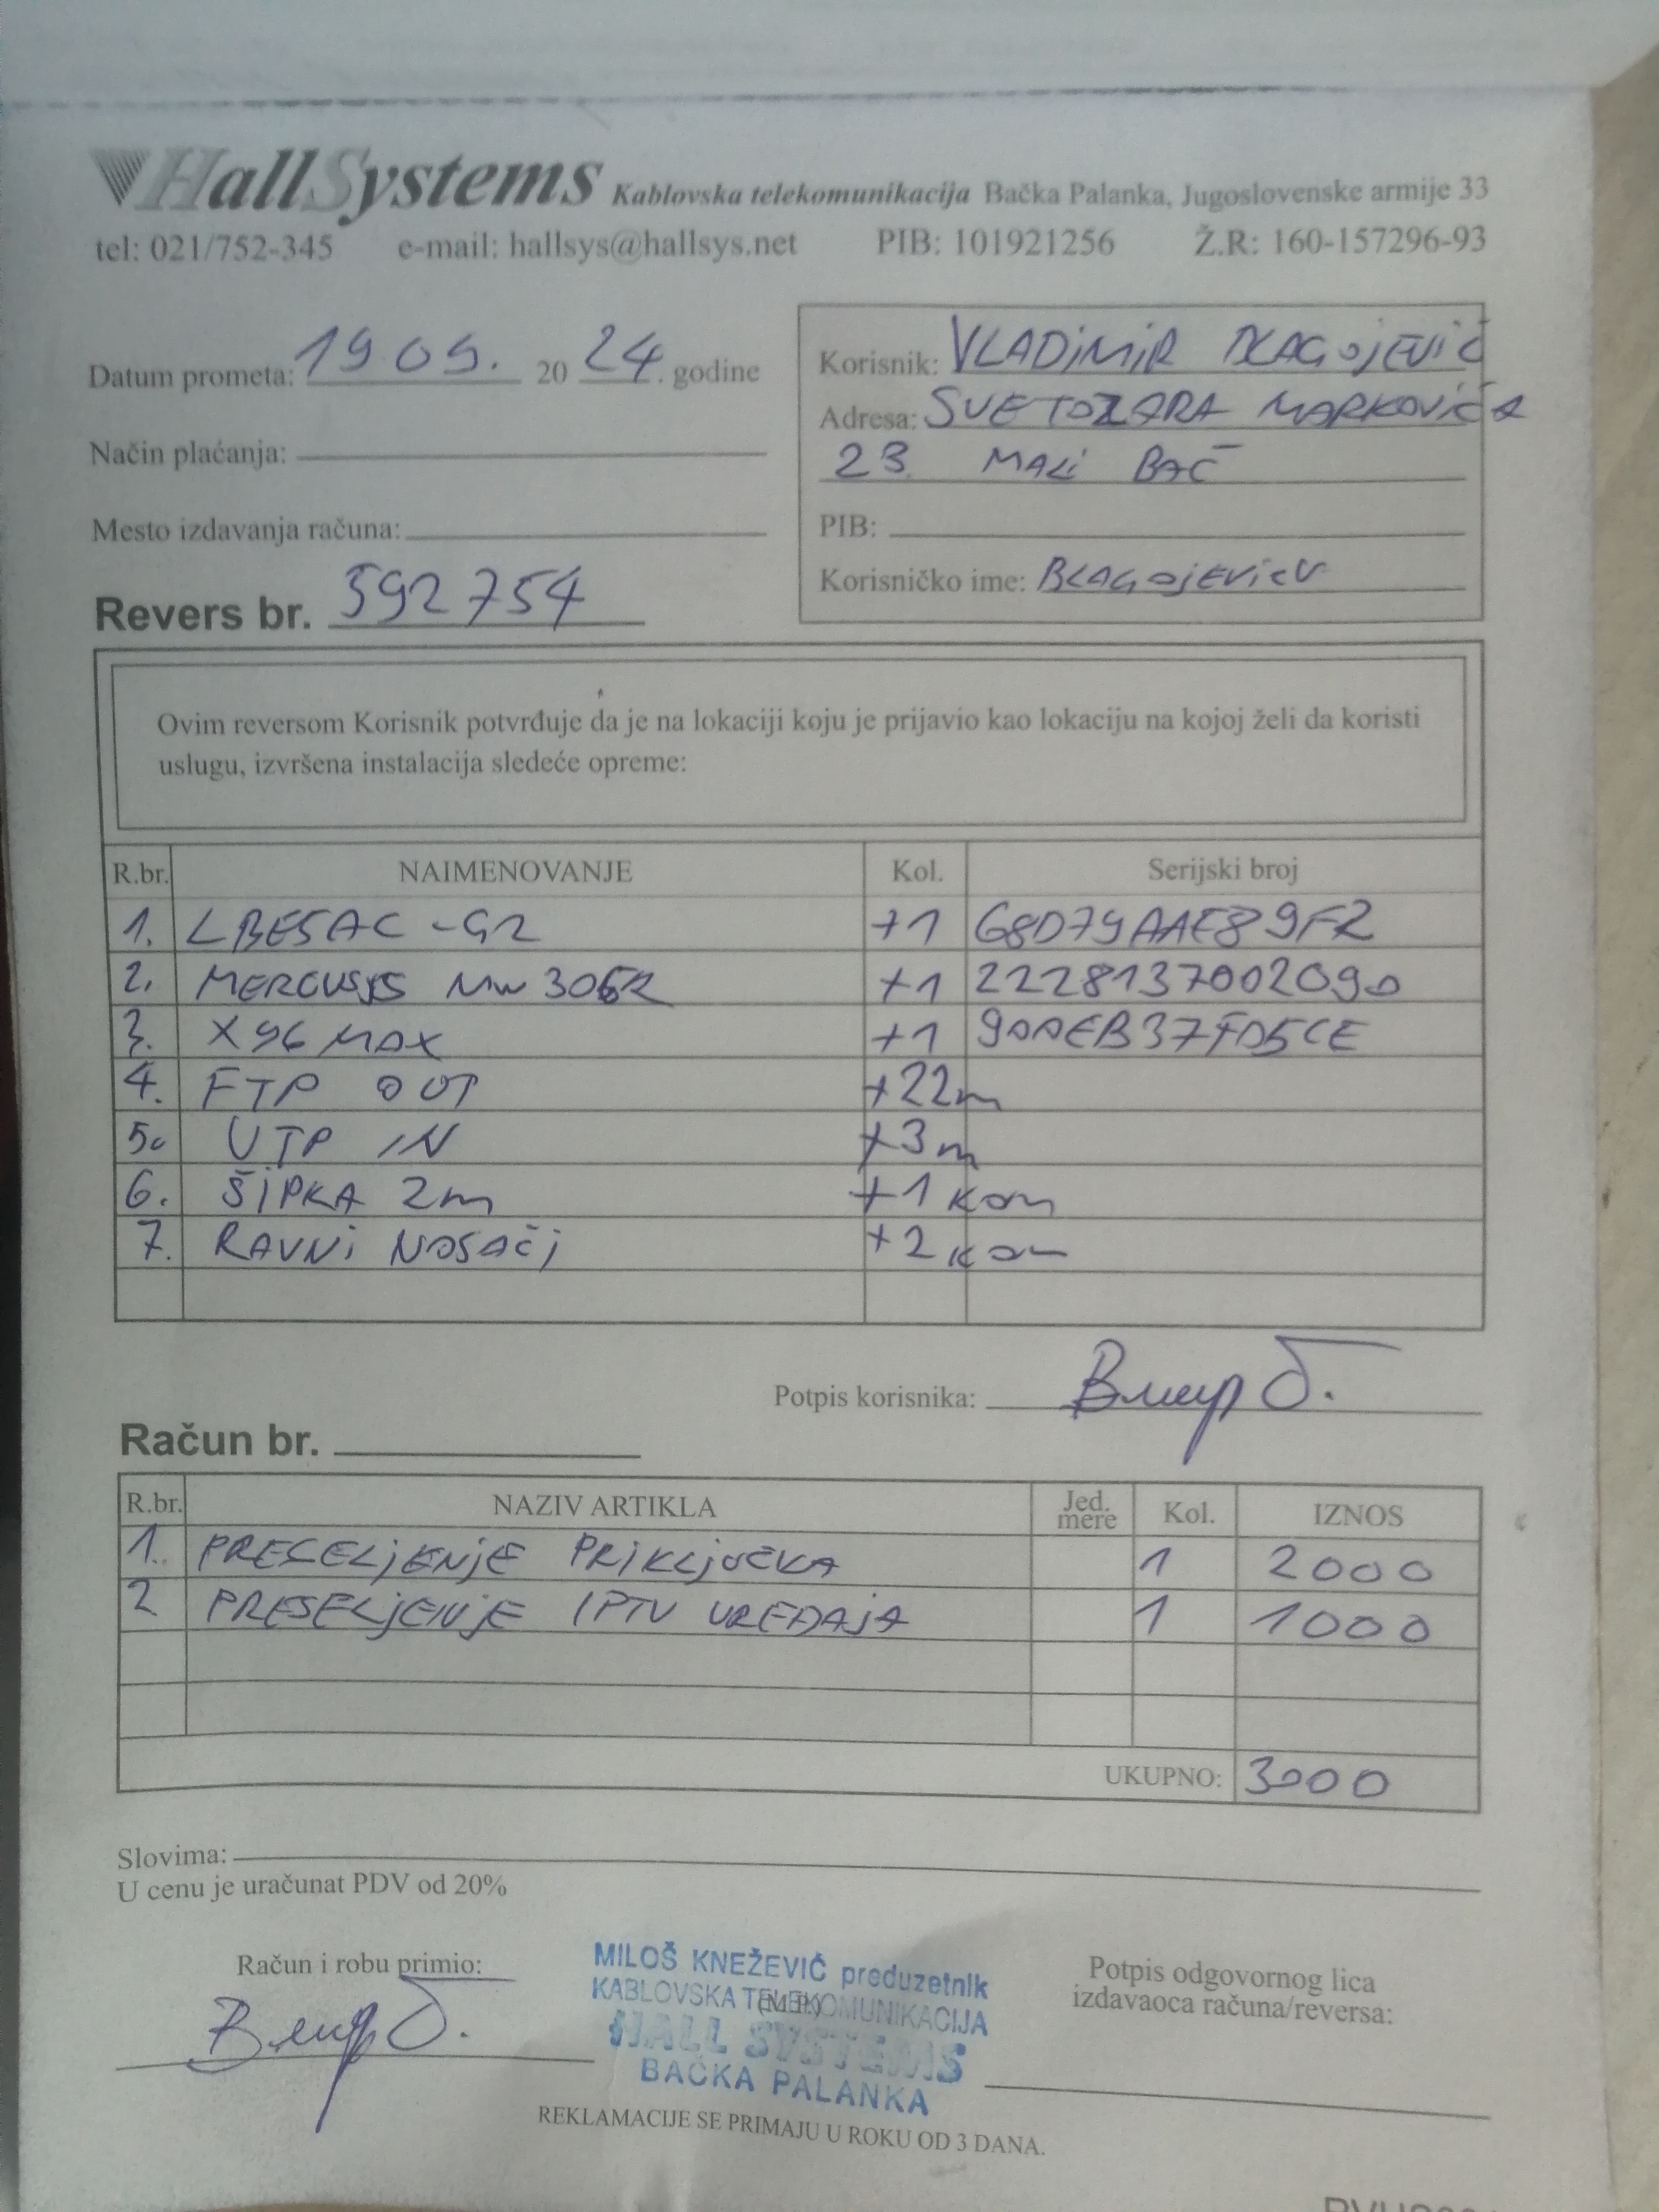 HallSystems Kablovska telekomunikacija Bačka Palanka, Jugoslovenske armije 33
tel: 021/752-345 e-mail: hallsys@hallsys.net PIB: 101921256 Ž.R: 160-157296-93
Datum prometa: 19 09. 20 24. godine
Način plaćanja:
Mesto izdavanja računa:
Revers br. 592754
Korisnik: VLADIMIR BLAGOJEVIĆ
Adresa: SVETOZARA MARKOVIĆA
23 MALI BAČ
PIB:
Korisničko ime: BLAGOJEVICV
Ovim reversom Korisnik potvrđuje da je na lokaciji koju je prijavio kao lokaciju na kojoj želi da koristi
uslugu, izvršena instalacija sledeće opreme:
R.br. NAIMENOVANJE Kol. Serijski broj
1. LBE5AC-G2 +1 68D79AAE89F2
2. MERCUSYS MW306R +1 2228137002090
3. X96 MAX +1 90AEB37FD5CE
4. FTP OUT +22m
5. UTP IN +3m
6. ŠIPKA 2m +1 kom
7. RAVNI NOSAČI +2 kom
Potpis korisnika:
Račun br.
R.br. NAZIV ARTIKLA Jed. mere Kol. IZNOS
1. PRESELJENJE PRIKLJUČKA 1 2000
2 PRESELJENJE IPTV UREĐAJA 1 1000
UKUPNO: 3000
Slovima:
U cenu je uračunat PDV od 20%
Račun i robu primio:
MILOŠ KNEŽEVIĆ preduzetnik
KABLOVSKA TELEKOMUNIKACIJA
(M.P.)
HALL SYSTEMS
BAČKA PALANKA
Potpis odgovornog lica
izdavaoca računa/reversa:
REKLAMACIJE SE PRIMAJU U ROKU OD 3 DANA.